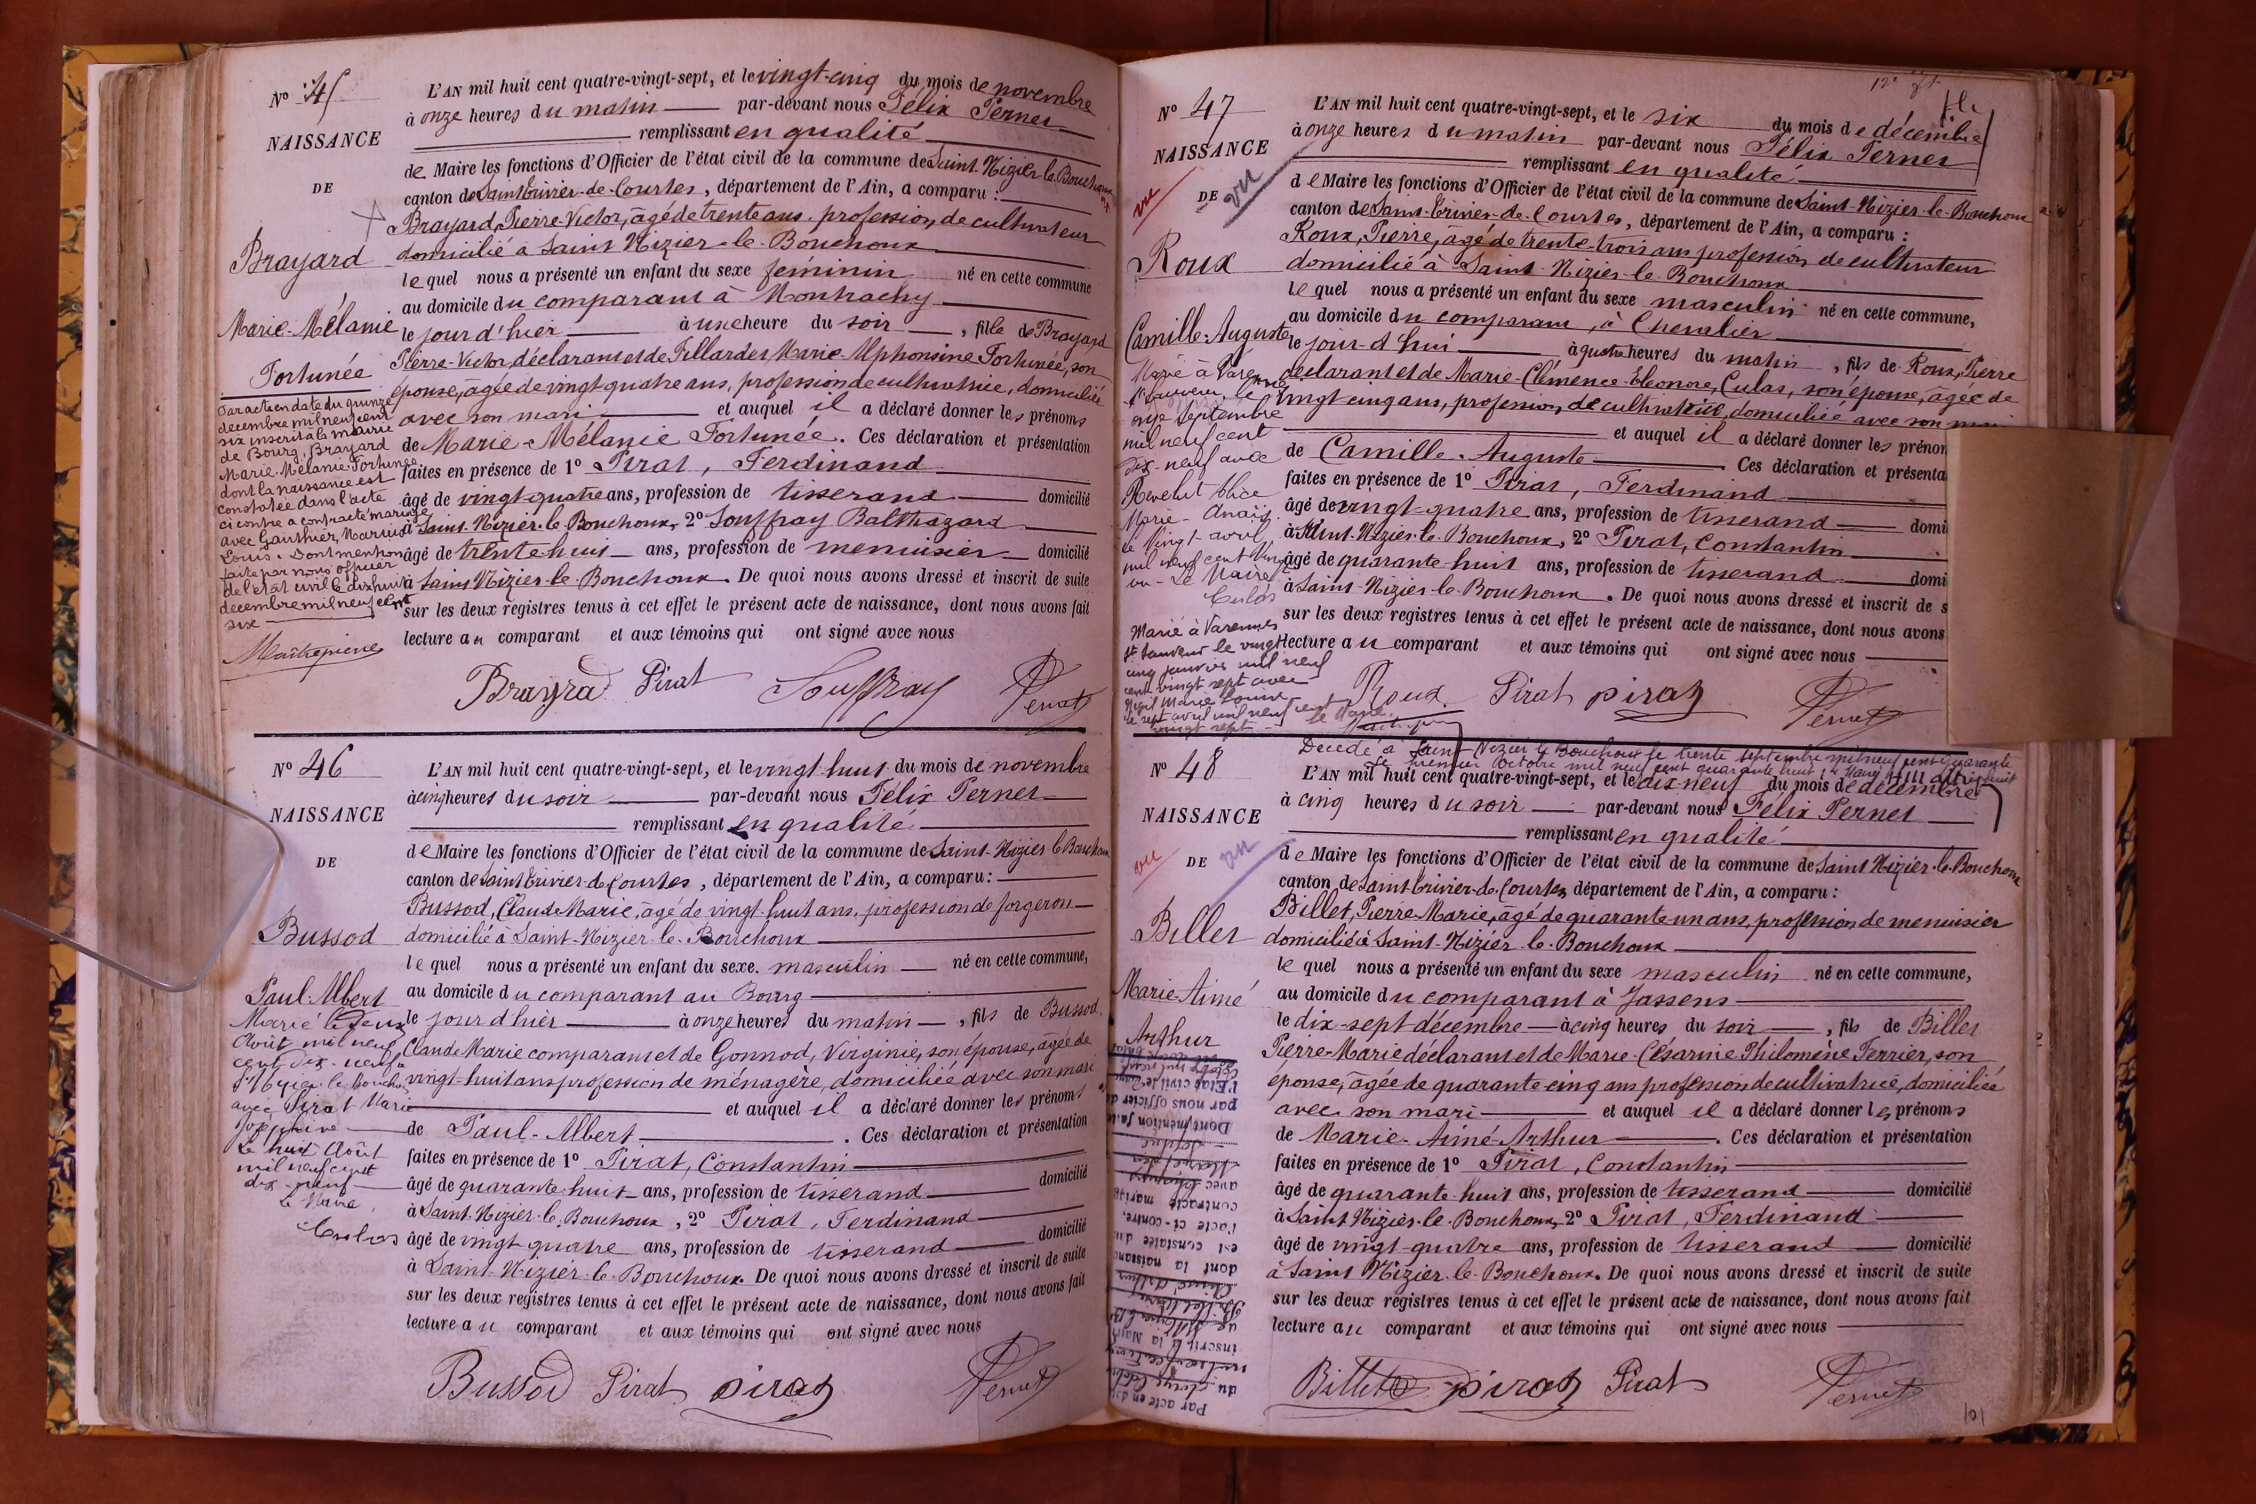 Nº 45
NAISSANCE
DE
Brayard
Marie-Mélanie
Fortunée
Par acte en date du quinze
décembre mil neuf cent
six inscrit à la mairie
de Bourg, Brayard
Marie-Mélanie-Fortunée
dont la naissance est
constatée dans l'acte
ci contre a contracté mariage
avec Gauthier, Marius
Louis. Dont mention
faite par nous officier
de l'état civil le dix huit
décembre mil neuf cent
six
L'AN mil huit cent quatre-vingt-sept, et le vingt-cinq du mois de novembre
à onze heures du matin par-devant nous Félix Pernet
remplissant en qualité
de Maire les fonctions d'Officier de l'état civil de la commune de Saint-Nizier-le-Bouchoux
canton de Saint Trivier-de-Courtes, département de l'Ain, a comparu :
Brayard, Pierre-Victor, âgé de trente ans, profession de cultivateur
domicilié à Saint Nizier-le-Bouchoux
lequel nous a présenté un enfant du sexe féminin né en cette commune
au domicile du comparant à Montrachy
le jour d'hier à une heure du soir, fille de Brayard
Pierre-Victor, déclarant et de Fillardet Marie Alphonsine Fortunée, son
épouse, âgée de vingt quatre ans, profession de cultivatrice, domiciliée
avec son mari et auquel il a déclaré donner les prénoms
de Marie-Mélanie Fortunée. Ces déclaration et présentation
faites en présence de 1º Pirat, Ferdinand
âgé de vingt-quatre ans, profession de tisserand domicilié
à Saint-Nizier-le-Bouchoux, 2º Souffray Balthazard
âgé de trente-huit ans, profession de menuisier domicilié
à Saint Nizier-le-Bouchoux. De quoi nous avons dressé et inscrit de suite
sur les deux registres tenus à cet effet le présent acte de naissance, dont nous avons fait
lecture au comparant et aux témoins qui ont signé avec nous
Brayrd Pirat Souffray Pernet
Nº 46
NAISSANCE
DE
Bussod
Paul-Albert
Marié le deux
Août mil neuf
cent dix-neuf à
St Nizier le Bouchoux
avec Pirat Marie
Joséphine
Le huit Août
mil neuf cent
dix-neuf
Le Maire
Culas
L'AN mil huit cent quatre-vingt-sept, et le vingt-huit du mois de novembre
à cinq heures du soir par-devant nous Félix Pernet
remplissant en qualité
de Maire les fonctions d'Officier de l'état civil de la commune de Saint-Nizier le Bouchoux
canton de Saint Trivier-de-Courtes, département de l'Ain, a comparu :
Bussod, Claude Marie, âgé de vingt-huit ans, profession de forgeron
domicilié à Saint-Nizier-le-Bouchoux
lequel nous a présenté un enfant du sexe masculin né en cette commune,
au domicile du comparant au Bourg
le jour d'hier à onze heures du matin, fils de Bussod
Claude Marie comparant et de Gonnod, Virginie, son épouse, âgée de
vingt-huit ans profession de ménagère, domiciliée avec son mari
et auquel il a déclaré donner les prénoms
de Paul-Albert. Ces déclaration et présentation
faites en présence de 1º Pirat, Constantin
âgé de quarante-huit ans, profession de tisserand domicilié
à Saint-Nizier-le-Bouchoux, 2º Pirat, Ferdinand
âgé de vingt quatre ans, profession de tisserand domicilié
à Saint-Nizier-le-Bouchoux. De quoi nous avons dressé et inscrit de suite
sur les deux registres tenus à cet effet le présent acte de naissance, dont nous avons fait
lecture au comparant et aux témoins qui ont signé avec nous
Bussod Pirat pirat Pernet
Nº 47
NAISSANCE
vu DE vu
Roux
Camille-Auguste
Marié à Varennes
St Sauveur, le
onze Septembre
mil neuf cent
dix-neuf avec
Alice
Marie-Anaïs
le Vingt avril
mil neuf cent vingt
un - Le Maire
Culas
Marié à Varennes
St Sauveur le vingt
cinq janvier mil neuf
cent vingt sept avec
Marie Louise
le sept avril mil neuf cent
vingt sept - Le Maire
L'AN mil huit cent quatre-vingt-sept, et le six du mois de décembre
à onze heures du matin par-devant nous Félix Pernet
remplissant en qualité
de Maire les fonctions d'Officier de l'état civil de la commune de Saint-Nizier-le-Bouchoux
canton de Saint-Trivier-de-Courtes, département de l'Ain, a comparu :
Roux, Pierre, âgé de trente-trois ans profession de cultivateur
domicilié à Saint-Nizier-le-Bouchoux
lequel nous a présenté un enfant du sexe masculin né en cette commune,
au domicile du comparant, à Chevalier
le jour-d'hui à quatre heures du matin, fils de Roux, Pierre
déclarant et de Marie-Clémence-Eléonore, Culas, son épouse, âgée de
vingt cinq ans, profession, de cultivatrice, domiciliée avec son mari
et auquel il a déclaré donner les prénom
de Camille-Auguste. Ces déclaration et présenta
faites en présence de 1º Pirat, Ferdinand
âgé de vingt-quatre ans, profession de tisserand domi
à Saint-Nizier-le-Bouchoux, 2º Pirat, Constantin
âgé de quarante-huit ans, profession de tisserand domi
à Saint-Nizier-le-Bouchoux. De quoi nous avons dressé et inscrit de s
sur les deux registres tenus à cet effet le présent acte de naissance, dont nous avons
lecture au comparant et aux témoins qui ont signé avec nous
Roux Pirat pirat Pernet
Décédé à Saint-Nizier le Bouchoux le trente septembre mil neuf cent quarante
huit le premier Octobre mil neuf cent quarante huit Le Maire
Nº 48
NAISSANCE
vu DE vu
Billet
Marie-Aimé
Arthur
L'AN mil huit cent quatre-vingt-sept, et le dix neuf du mois de décembre
à cinq heures du soir par-devant nous Félix Pernet
remplissant en qualité
de Maire les fonctions d'Officier de l'état civil de la commune de Saint Nizier-le-Bouchoux
canton de Saint-Trivier-de-Courtes département de l'Ain, a comparu :
Billet, Pierre-Marie, âgé de quarante-un ans, profession de menuisier
domicilié à Saint-Nizier-le-Bouchoux
lequel nous a présenté un enfant du sexe masculin né en cette commune,
au domicile du comparant à Jassens
le dix-sept décembre à cinq heures du soir, fils de Billet
Pierre-Marie déclarant et de Marie-Césarine Philomène Ferrier, son
épouse, âgée de quarante-cinq ans profession de cultivatrice, domiciliée
avec son mari et auquel il a déclaré donner les prénoms
de Marie-Aimé-Arthur. Ces déclaration et présentation
faites en présence de 1º Pirat, Constantin
âgé de quarante-huit ans, profession de tisserand domicilié
à Saint Nizier-le-Bouchoux, 2º Pirat, Ferdinand
âgé de vingt-quatre ans, profession de tisserand domicilié
à Saint Nizier-le-Bouchoux. De quoi nous avons dressé et inscrit de suite
sur les deux registres tenus à cet effet le présent acte de naissance, dont nous avons fait
lecture au comparant et aux témoins qui ont signé avec nous
Billet pirat Pirat Pernet
Par acte en date
du
inscrit à la Mairie
de
Billet Marie
Aimé Arthur
dont la naissance
est constatée dans
l'acte ci-contre,
contracté mariage
avec
Dont mention faite
par nous officier de
l'Etat civil
101